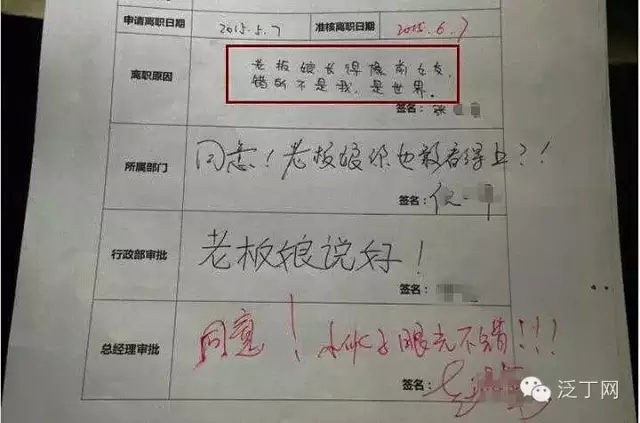 申请离职日期 2015.5.7 准核离职日期 2015.6.7
离职原因
老板娘长得像前女友,
错的不是我,是世界。
签名: 张
所属部门
同意!老板娘你也敢看得上?!
签名:
行政部审批
老板娘说好!
签名:
总经理审批
同意!小伙子眼光不错!!!
签名:
泛丁网